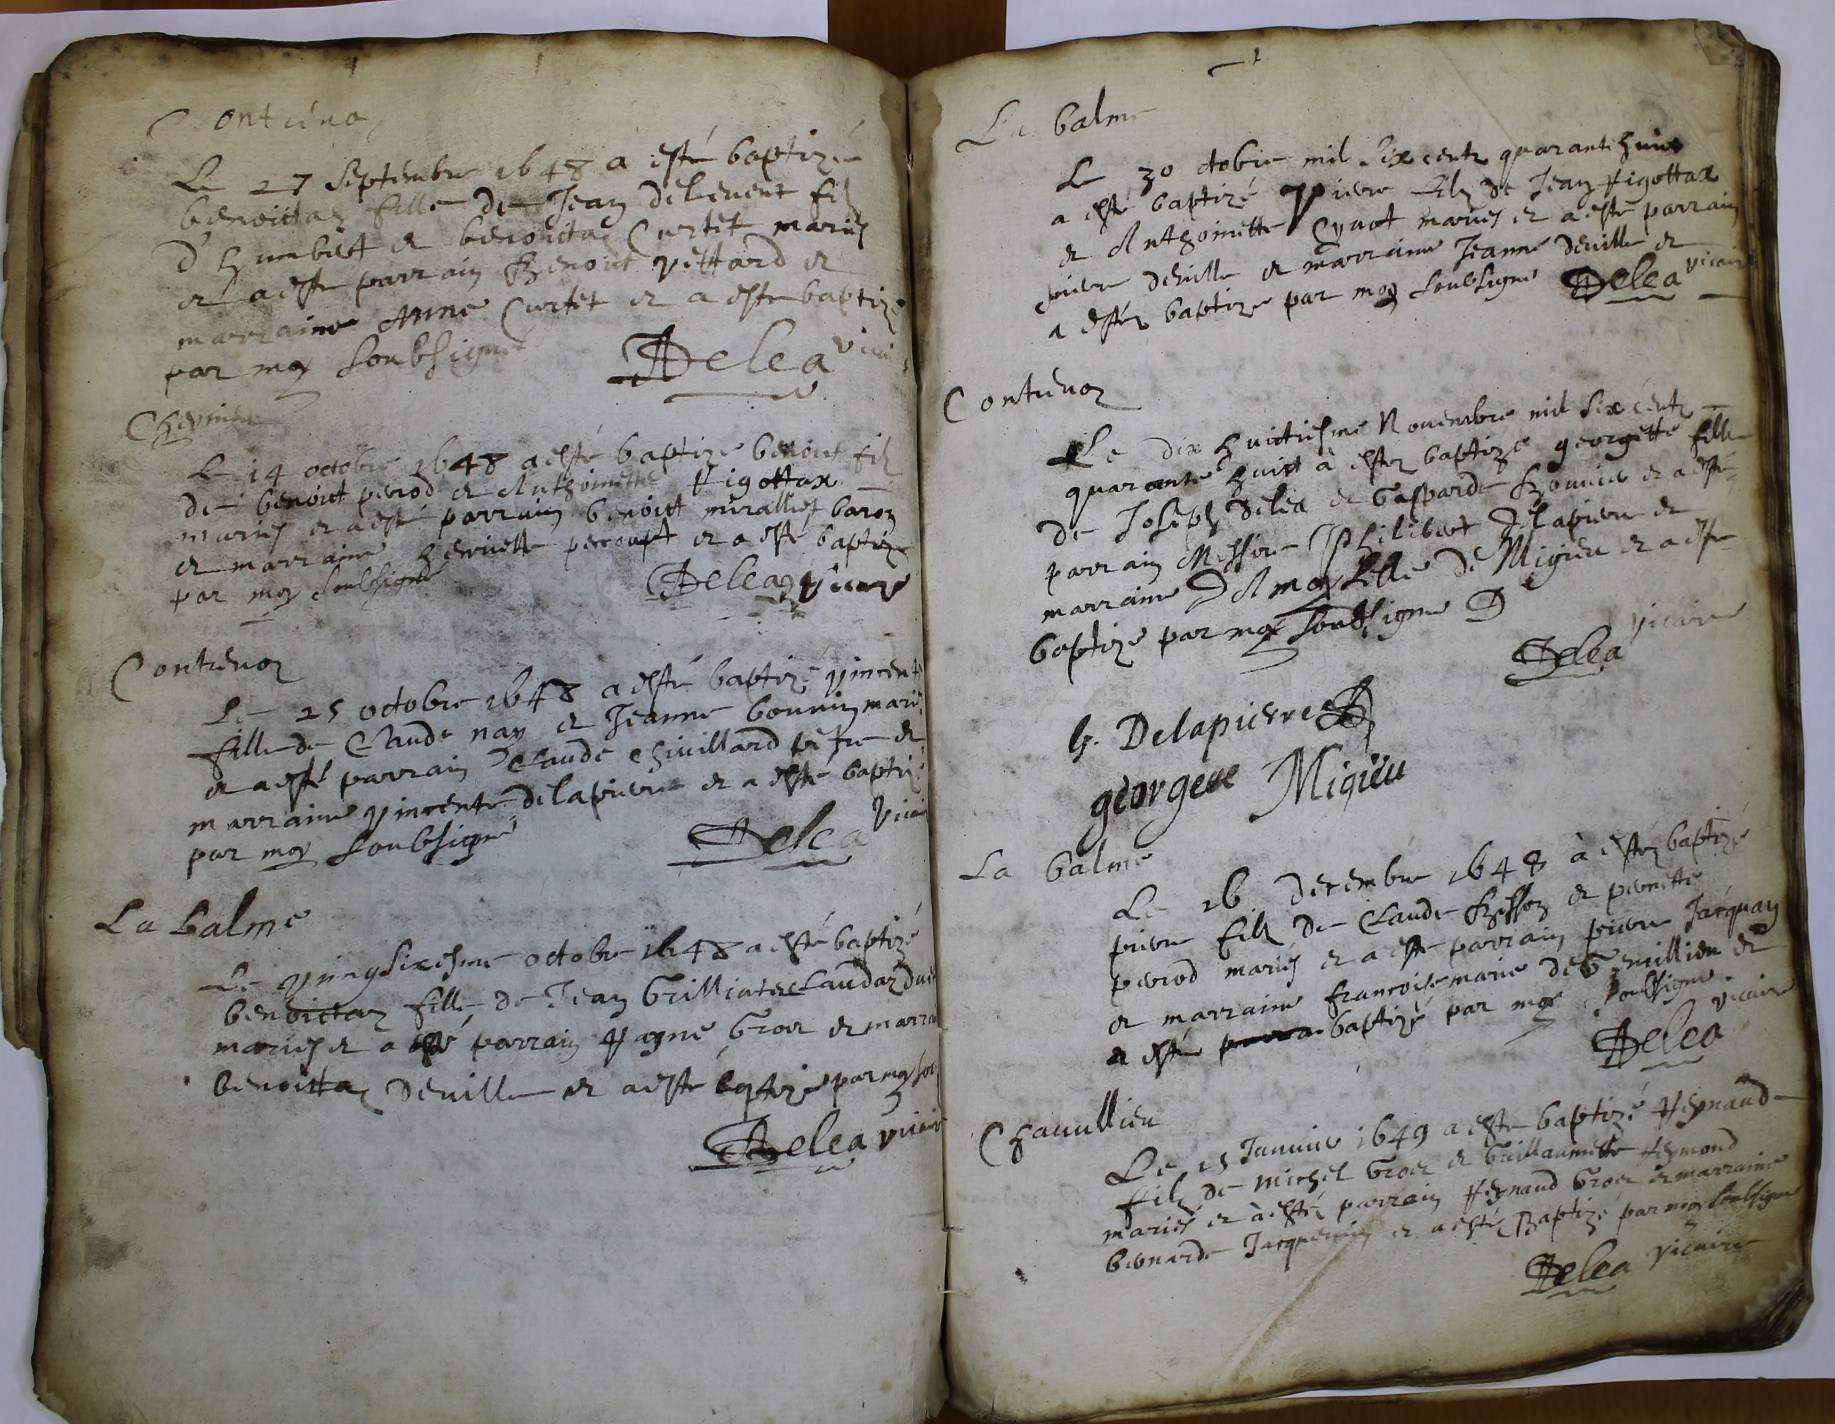 Contrevoz
Le 27 Septembre 1648 a esté baptizée
benoictaz fille de Jean delevent filz
d'humbert et benoictaz Curtet mariés
et a esté parrain Benoict vettard et
marraine Anne Curtet et a esté baptizé
par moy soubsigné Delea vicaire
Le 14 octobre 1648 a esté baptize benoict filz
de benoict perod et Anthoinette Rigottax
mariés et a esté parrain benoict miralliet baron
et marraine henriette et a esté baptizé
par moy soubsigné Delea vicaire
Contrevoz
Le 25 octobre 1648 a esté baptizé vincente
fille de Claude nay et Jeanne bonnin mariés
et a esté parrain Claude Chivillard pétre et
marraine vincente delapierre et a esté baptizé
par moy soubsigné Delea vicai
La balme
Le vingsixesme octobre 1648 a esté baptizé
benoictaz fille de Jean Grilliat et Claudaz
mariés et a esté parrain Groz et marra
benoittaz deville et a esté baptizé par moy sou
Delea vicair
La balme
Le 30 octobre mil six centz quarante huict
a esté baptizé Pierre filz de Jean Rigottax
et Anthoinette Cynot mariés et a esté parrain
pierre deville et marraine Jeanne deville et
a estéz baptize par moy soubsigne Delea vicaire
Contrevoz
Le dix huictiesme Novembre mil six centz
quarante huict à estez baptizé georgette fille
de Joseph Delea et Gasparde et a esté
parrain Messire Philibert Delapierre et
marraine DAmoyselle de Migieu et a este
baptize par moy soubsigne D
Delea vicaire
h. Delapierre
georgette Migieu
La balme
Le 16 decembre 1648 à estéz baptizé
pierre filz de Claude Besson et pernette
perod mariés et a esté parrain pierre Jacquan
et marraine francoise marie de Gemillieu et
a esté parra baptizé par moy soubsigne
Delea vicaire
Chavillieu
Le 25 Janvier 1649 a esté baptizé Reynaud
filz de michel Groz et Guillaumette Reymond
mariés et à estéz parrain Reynaud Groz et marraine
bernarde et a esté Baptizé par moy soubsigne
Delea vicaire